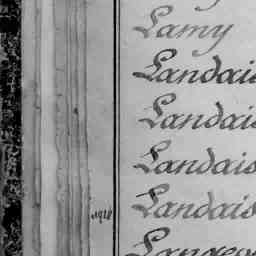 Lamy
Landais
Landais
Landais
Landais